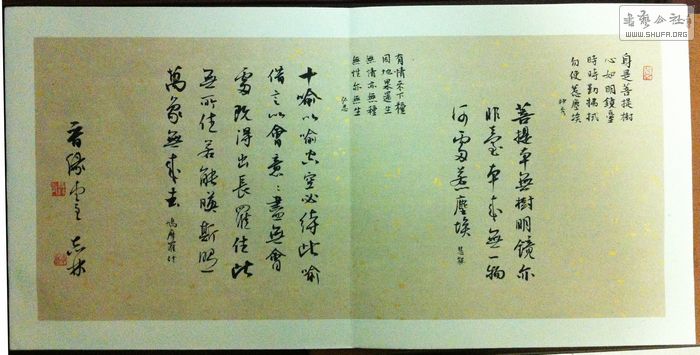 书艺公社
WWW.SHUFA.ORG
身是菩提樹
心如明鏡臺
時時勤拂拭
勿使惹塵埃 神秀
菩提本無樹明鏡亦
非臺本來無一物
何處惹塵埃 慧能
有情來下種
因地果還生
無情亦無種
無性亦無生 弘忍
十喻以喻空空必待此喻
借言以會意〻盡無會
處既得出長羅住此
無所住若能映斯照
萬象無來去 鳩摩羅什
志林